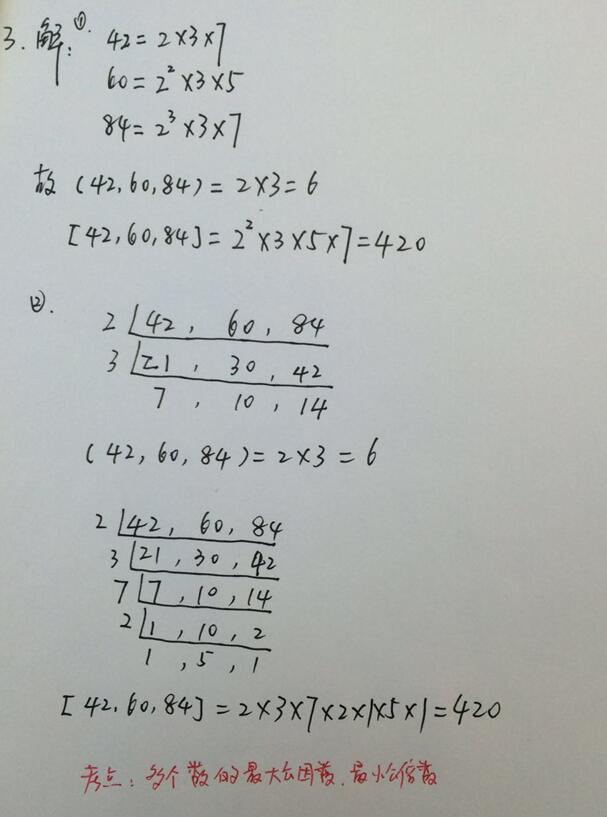 3. 解: ①. 42 = 2×3×7
60 = 2²×3×5
84 = 2³×3×7
故 (42, 60, 84) = 2×3 = 6
[42, 60, 84] = 2²×3×5×7 = 420
②.
2 42, 60, 84
3 21, 30, 42
7, 10, 14
(42, 60, 84) = 2×3 = 6
2 42, 60, 84
3 21, 30, 42
7 7, 10, 14
2 1, 10, 2
1, 5, 1
[42, 60, 84] = 2×3×7×2×1×5×1 = 420
考点: 多个数的最大公因数、最小公倍数